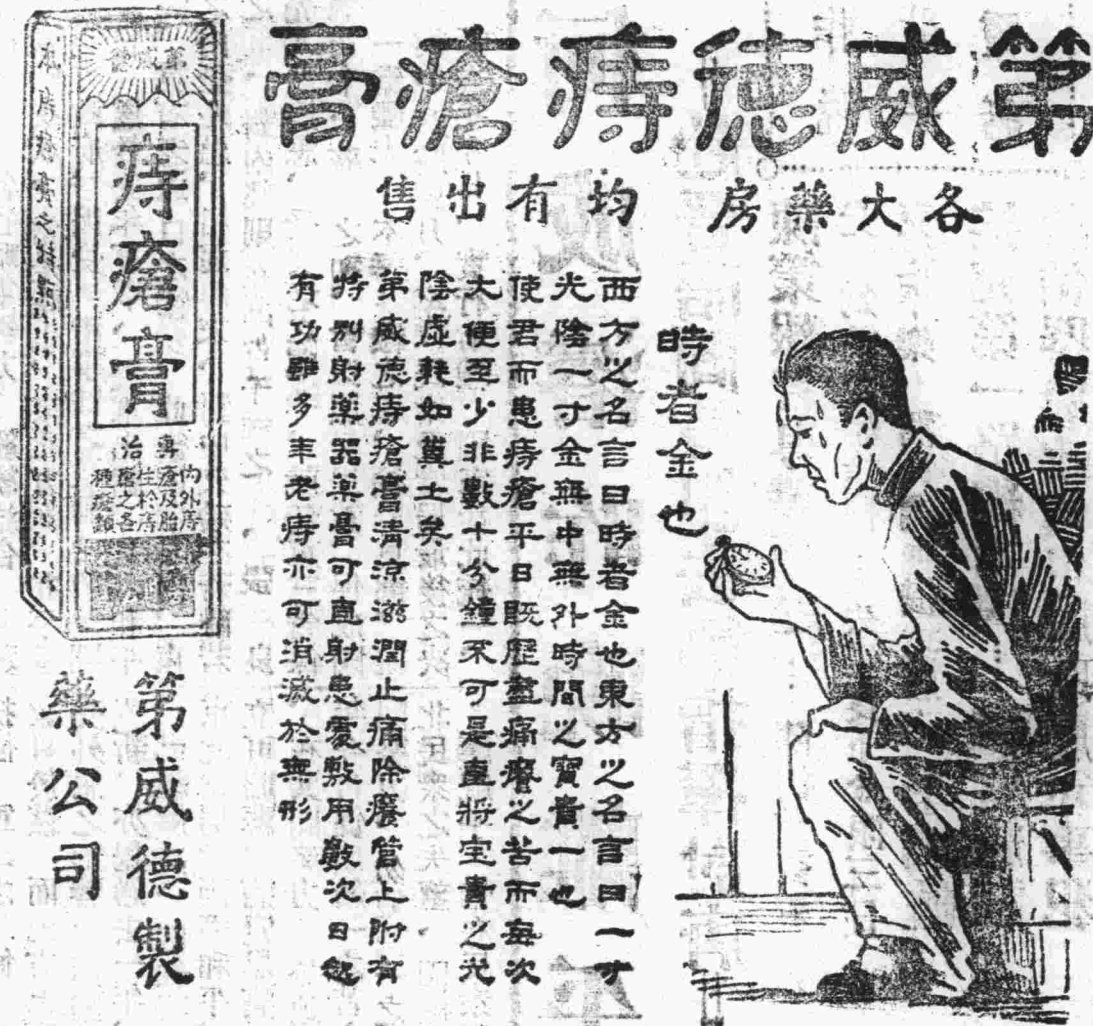 第威德痔瘡膏
各大藥房 均有出售
時者金也
西方之名言曰時者金也東方之名言曰一寸
光陰一寸金無中無外時間之寶貴一也
使君而患痔瘡平日既歷盡痛癢之苦而每次
大便至少非數十分鐘不可是直將宝貴之光
陰虛耗如糞土矣
第威德痔瘡膏清涼滋潤止痛除癢管上附有
特別射藥器藥膏可直射患處敷用數次日起
有功雖多年老痔亦可消滅於無形
第威德
痔瘡膏
專治
內外痔
瘡及胎
生於痔
瘡之各
種
本房瘡膏之特點
第威德製
藥公司